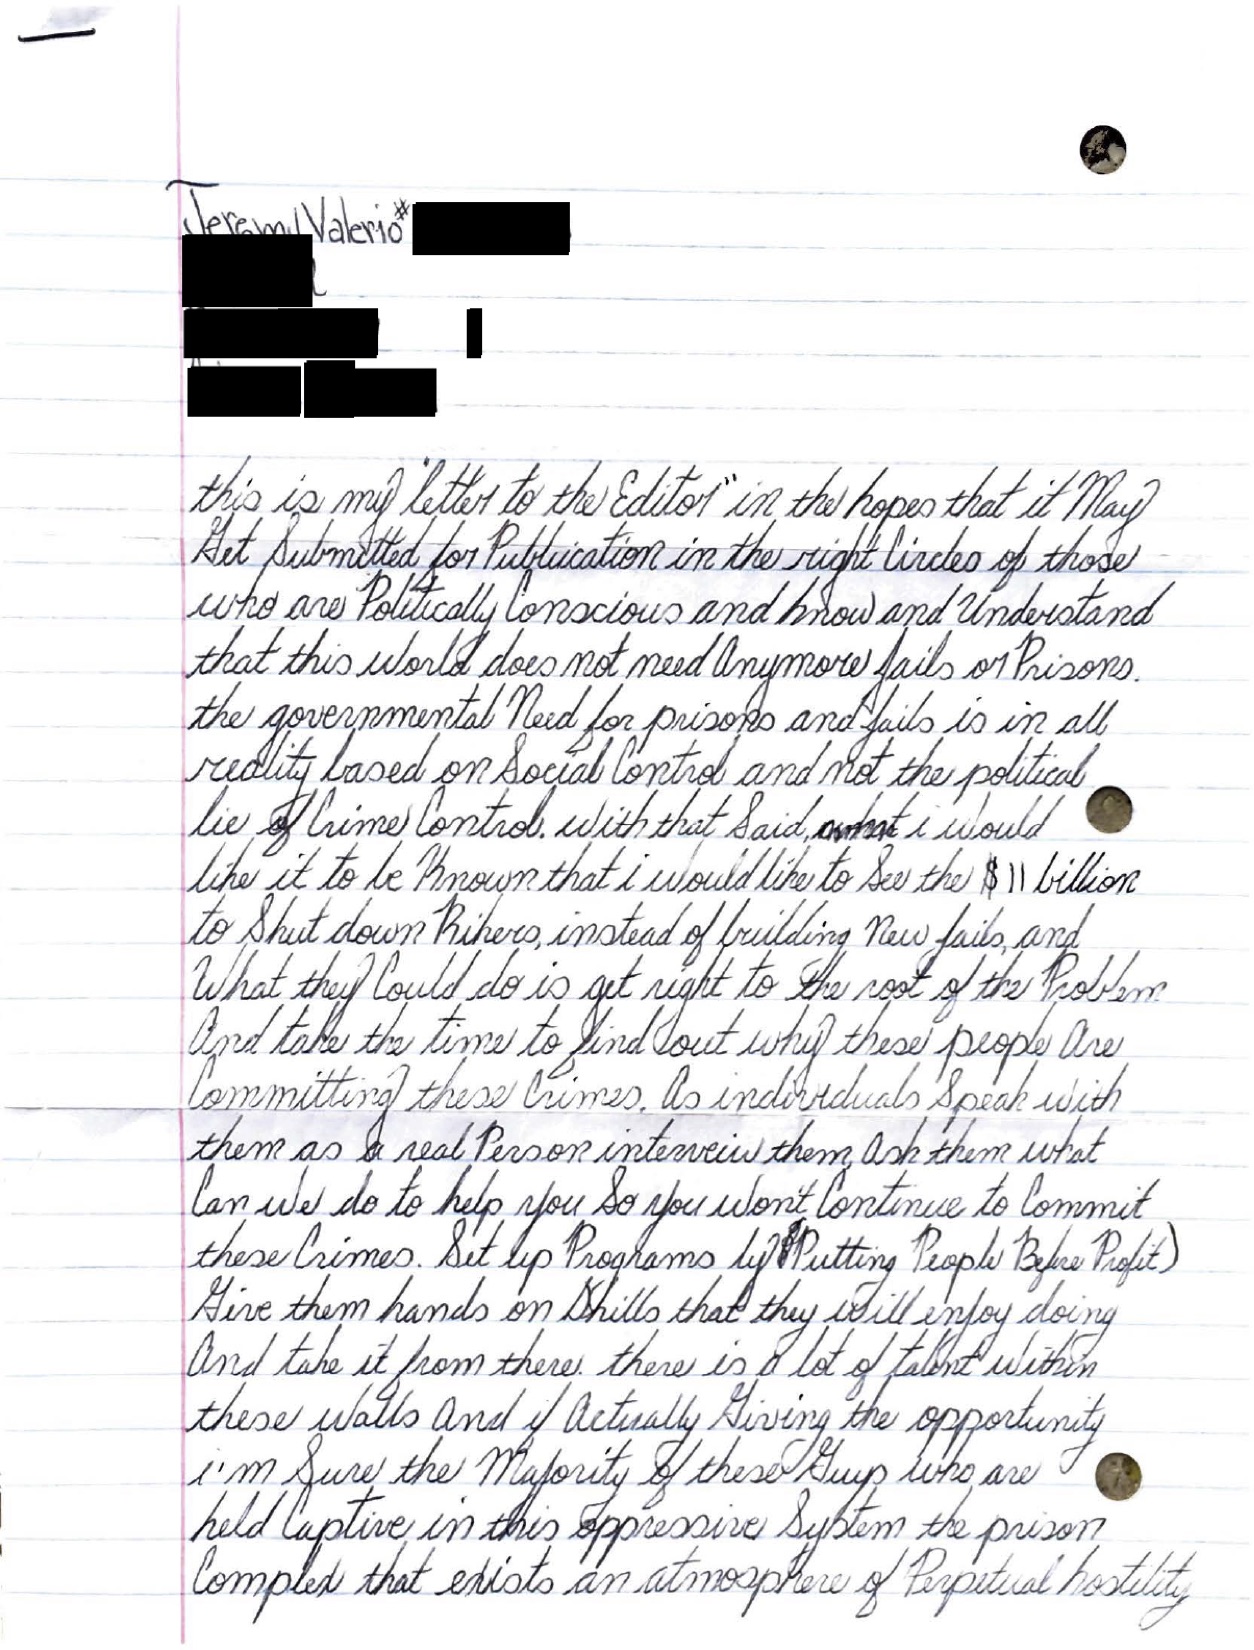 Jeremy Valerio #
this is my "letter to the Editor" in the hopes that it May
Get Submitted for Publication in the right Circles of those
who are Politically Conscious and know and Understand
that this world does not need Anymore jails or Prisons.
the governmental Need for prisons and jails is in all
reality based on Social Control and not the political
lie of Crime Control. with that Said, i would
like it to be Known that i would like to See the $11 billion
to Shut down Rikers, instead of building New jails, and
What they Could do is get right to the root of the Problem
And take the time to find out why these people Are
Committing these Crimes. As individuals Speak with
them as a real Person interveiw them, Ask them what
Can we do to help you So you Won't Continue to Commit
these Crimes. Set up Programs by (Putting People Before Profit)
Give them hands on Skills that they will enjoy doing
And take it from there. there is a lot of talent within
these walls And if Actually Giving the opportunity
i'm Sure the Majority of these Guys who are
held Captive in this oppressive System the prison
Complex that exists an atmosphere of Perpetual hostility